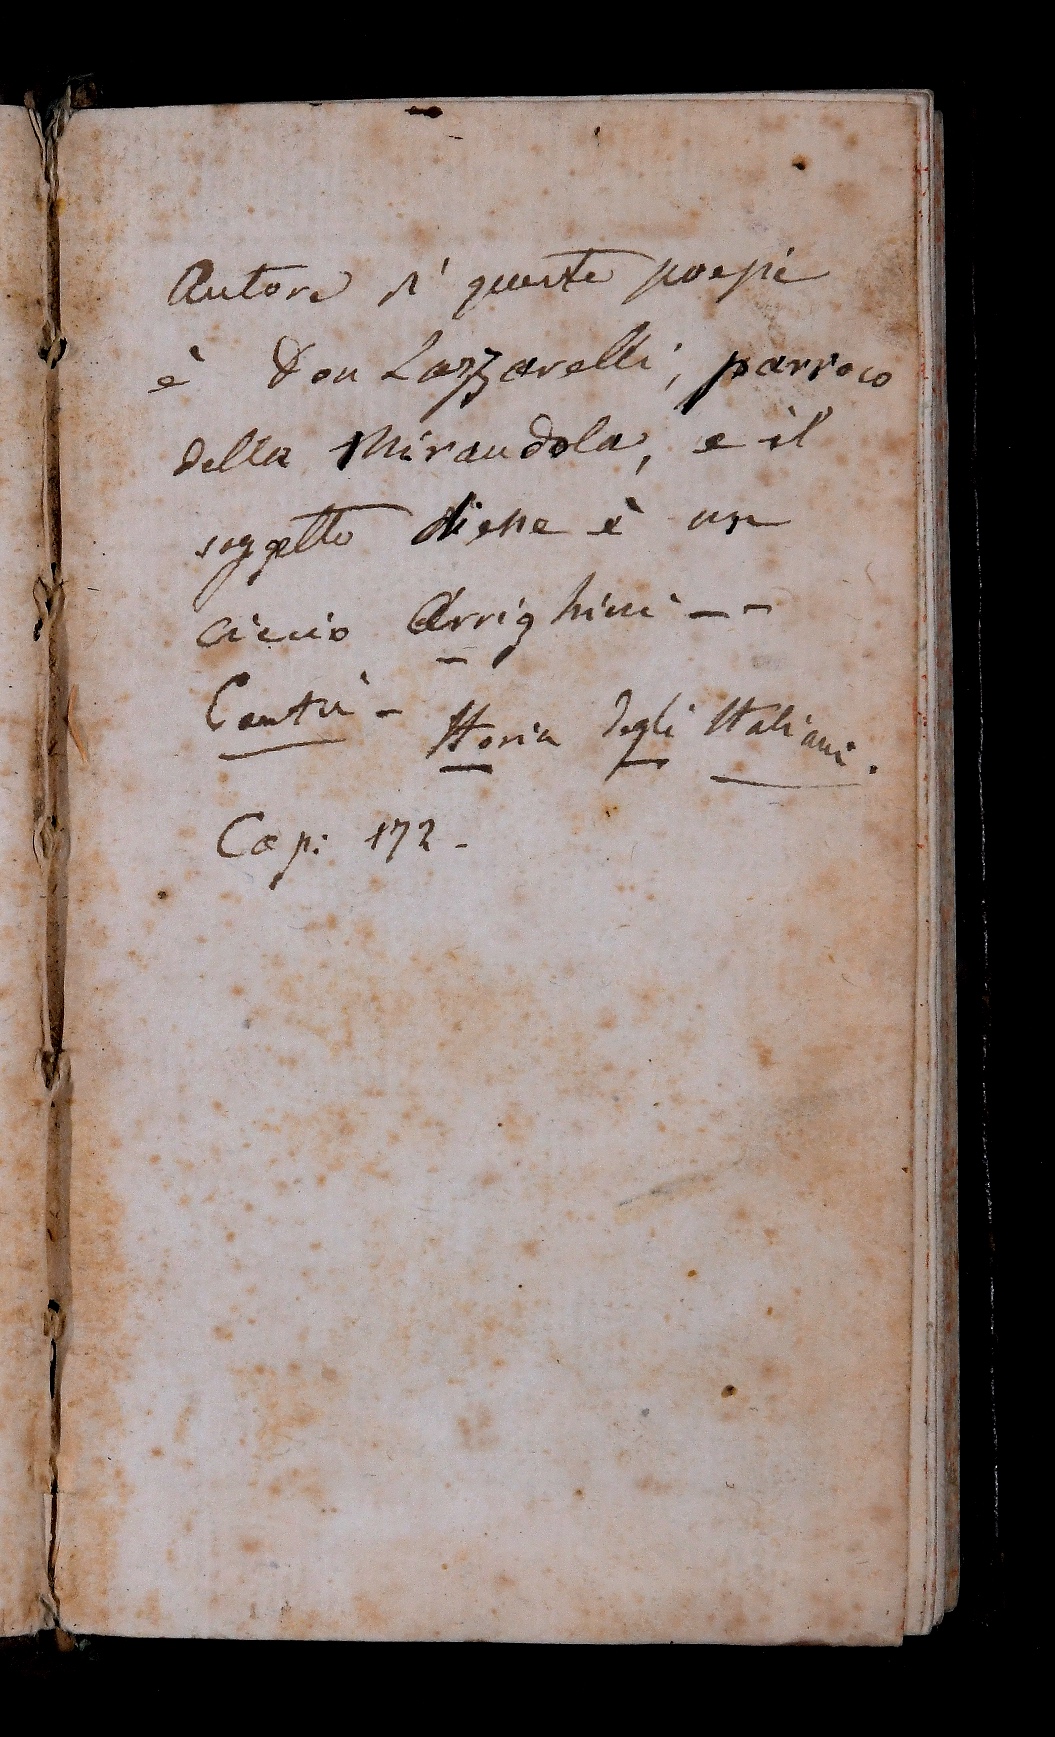 Autore di queste poesie
è Don Lazzarelli, parroco
della Mirandola, e il
soggetto di esse è un
ciccio Arrighini --
Cantù - Storia degli Italiani.
Cap: 172 -